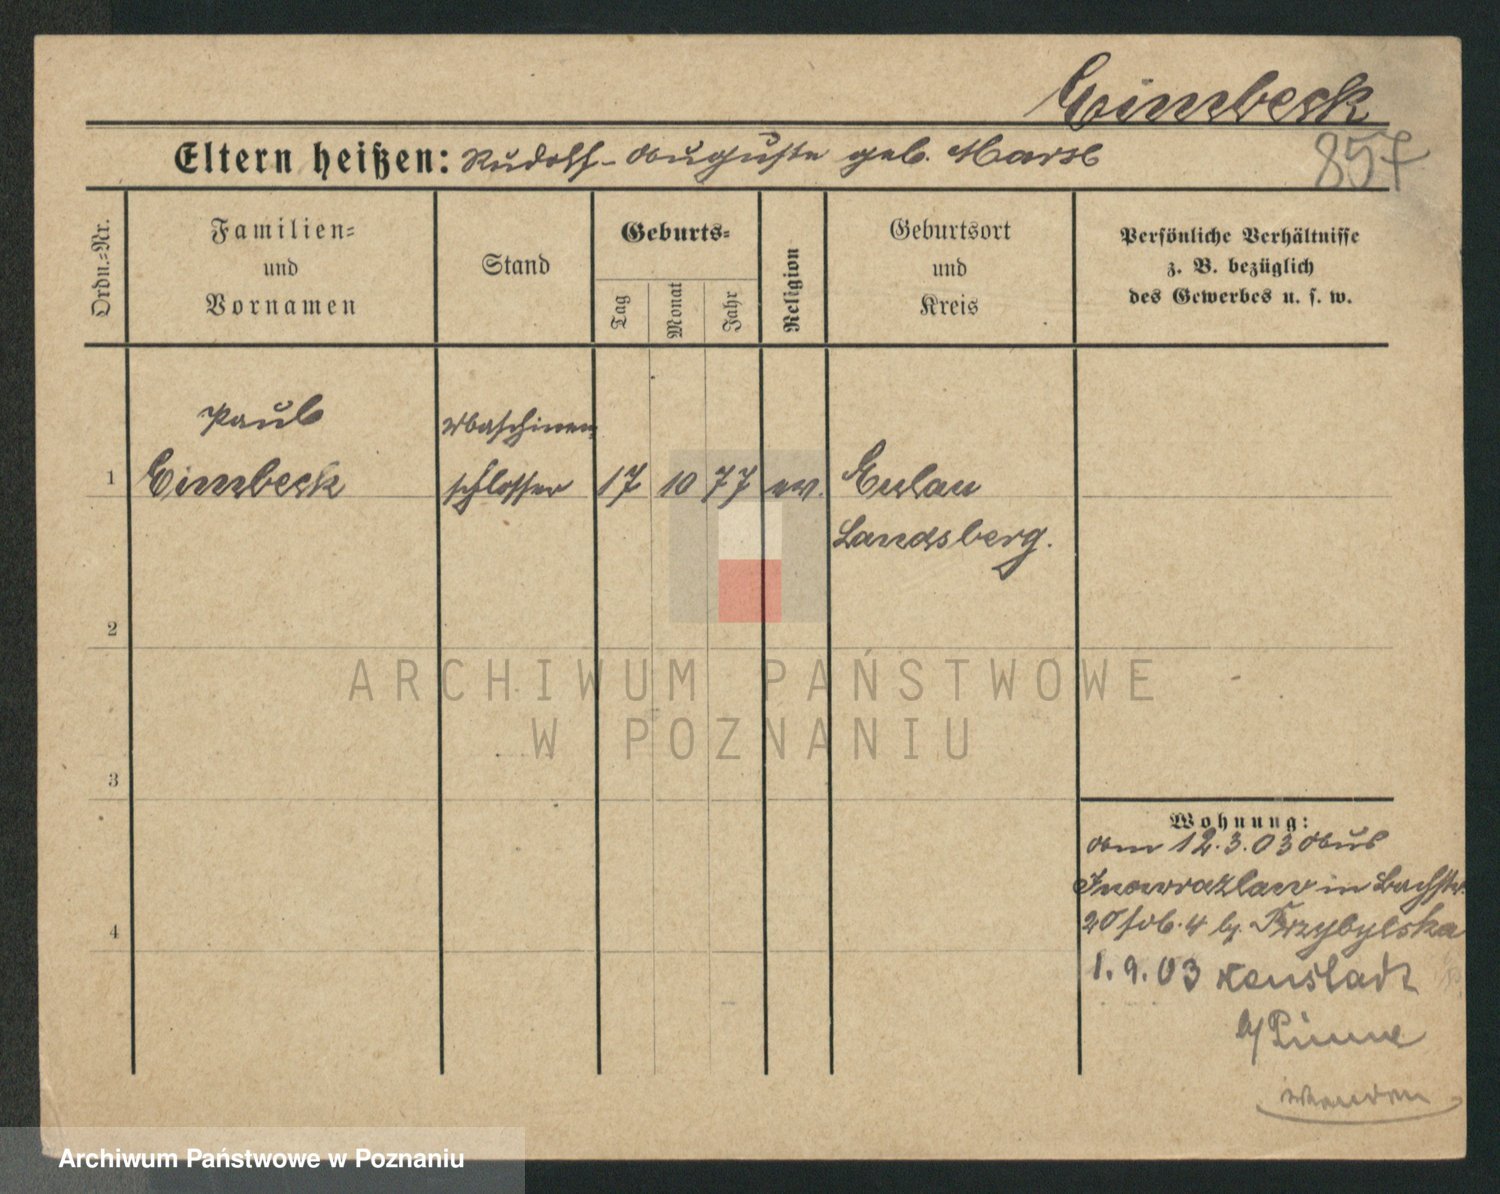 Eimbeck
Eltern heißen: Rudolf - Auguste geb.
857
Ordn.-Nr.
Familien-
und
Vornamen
Stand
Geburts-
Tag
Monat
Jahr
Religion
Geburtsort
und
Kreis
Persönliche Verhältnisse
z. B. bezüglich
des Gewerbes u. s. w.
Paul
Maschinen
1 Eimbeck schlosser 17 10 77 ev. Eulau
Landsberg.
2
ARCHIWUM PAŃSTWOWE
W POZNANIU
3
Wohnung:
Am 12.3.03 Aus
Inowrazlaw in Bachstr.
20 b. Przybylska
4
1.9.03 Neustadt
b/Pinne
wenden
Archiwum Państwowe w Poznaniu